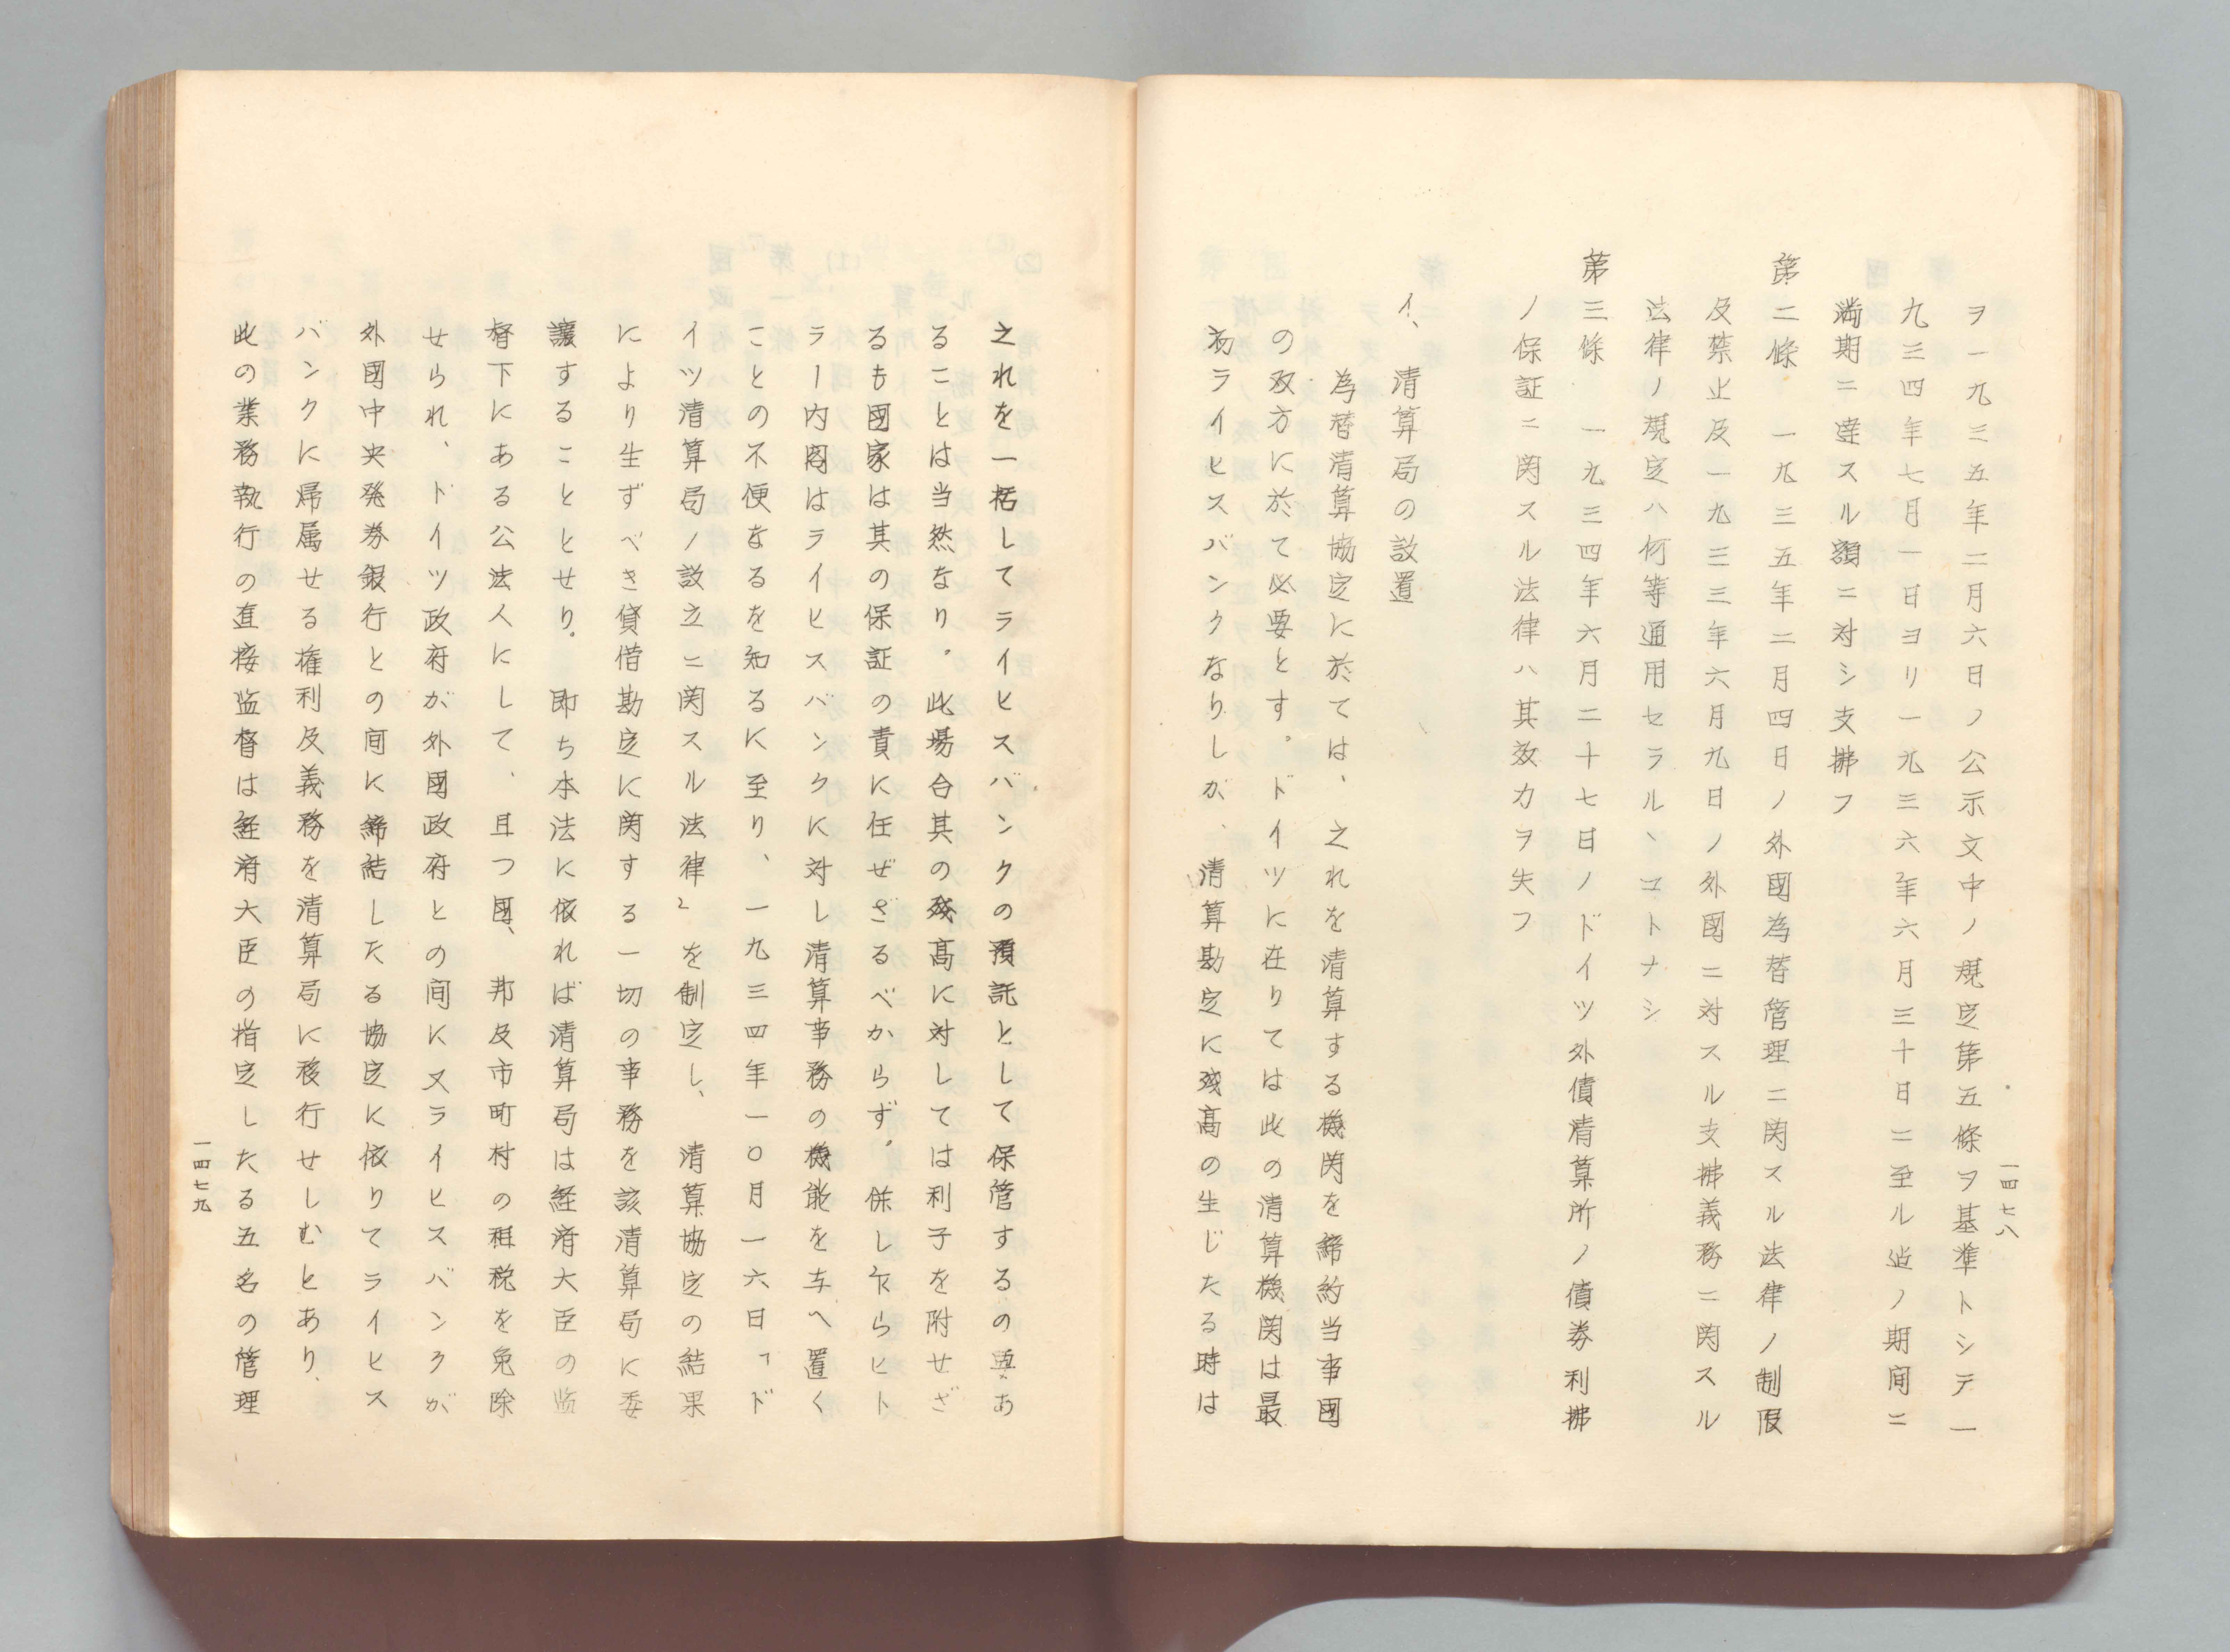 一四七八
ヲ一九三五年二月六日ノ公示文中ノ規定第五條ヲ基準トシテ一
九三四年七月一日ヨリ一九三六年六月三十日ニ至ル迠ノ期间ニ
満期ニ達スル額ニ対シ支拂フ
第二條　一九三五年二月四日ノ外國為替管理ニ関スル法律ノ制限
及禁止及一九三三年六月九日ノ外國ニ対スル支拂義務ニ関スル
法律ノ規定ハ何等適用セラルヽコトナシ
第三條　一九三四年六月二十七日ノドイツ外債清算所ノ債券利拂
ノ保証ニ関スル法律ハ其效力ヲ失フ
イ、清算局の設置
為替清算協定に於ては、之れを清算する機関を締約当事國
の双方に於て必要とす。ドイツに在りては此の清算機関は最
初ライヒスバンクなりしが、清算勘定に残高の生じたる時は
之れを一括してライヒスバンクの預託として保管するの要あ
ることは当然なり。此場合其の残高に対しては利子を附せざ
るも國家は其の保証の責に任ぜざるべからず。併し乍らヒト
ラー内閣はライヒスバンクに対し清算事務の機能を与へ置く
ことの不便なるを知るに至り、一九三四年一〇月一六日「ド
イツ清算局ノ設立ニ関スル法律」を制定し、清算協定の結果
により生ずべき貸借勘定に関する一切の事務を該清算局に委
譲することとせり。即ち本法に依れば清算局は経済大臣の監
督下にある公法人にして、且つ國、邦及市町村の租税を免除
せられ、ドイツ政府が外國政府との间に又ライヒスバンクが
外國中央発券銀行との间に締結したる協定に依りてライヒス
バンクに帰属せる権利及義務を清算局に移行せしむとあり、
此の業務執行の直接監督は経済大臣の指定したる五名の管理
一四七九